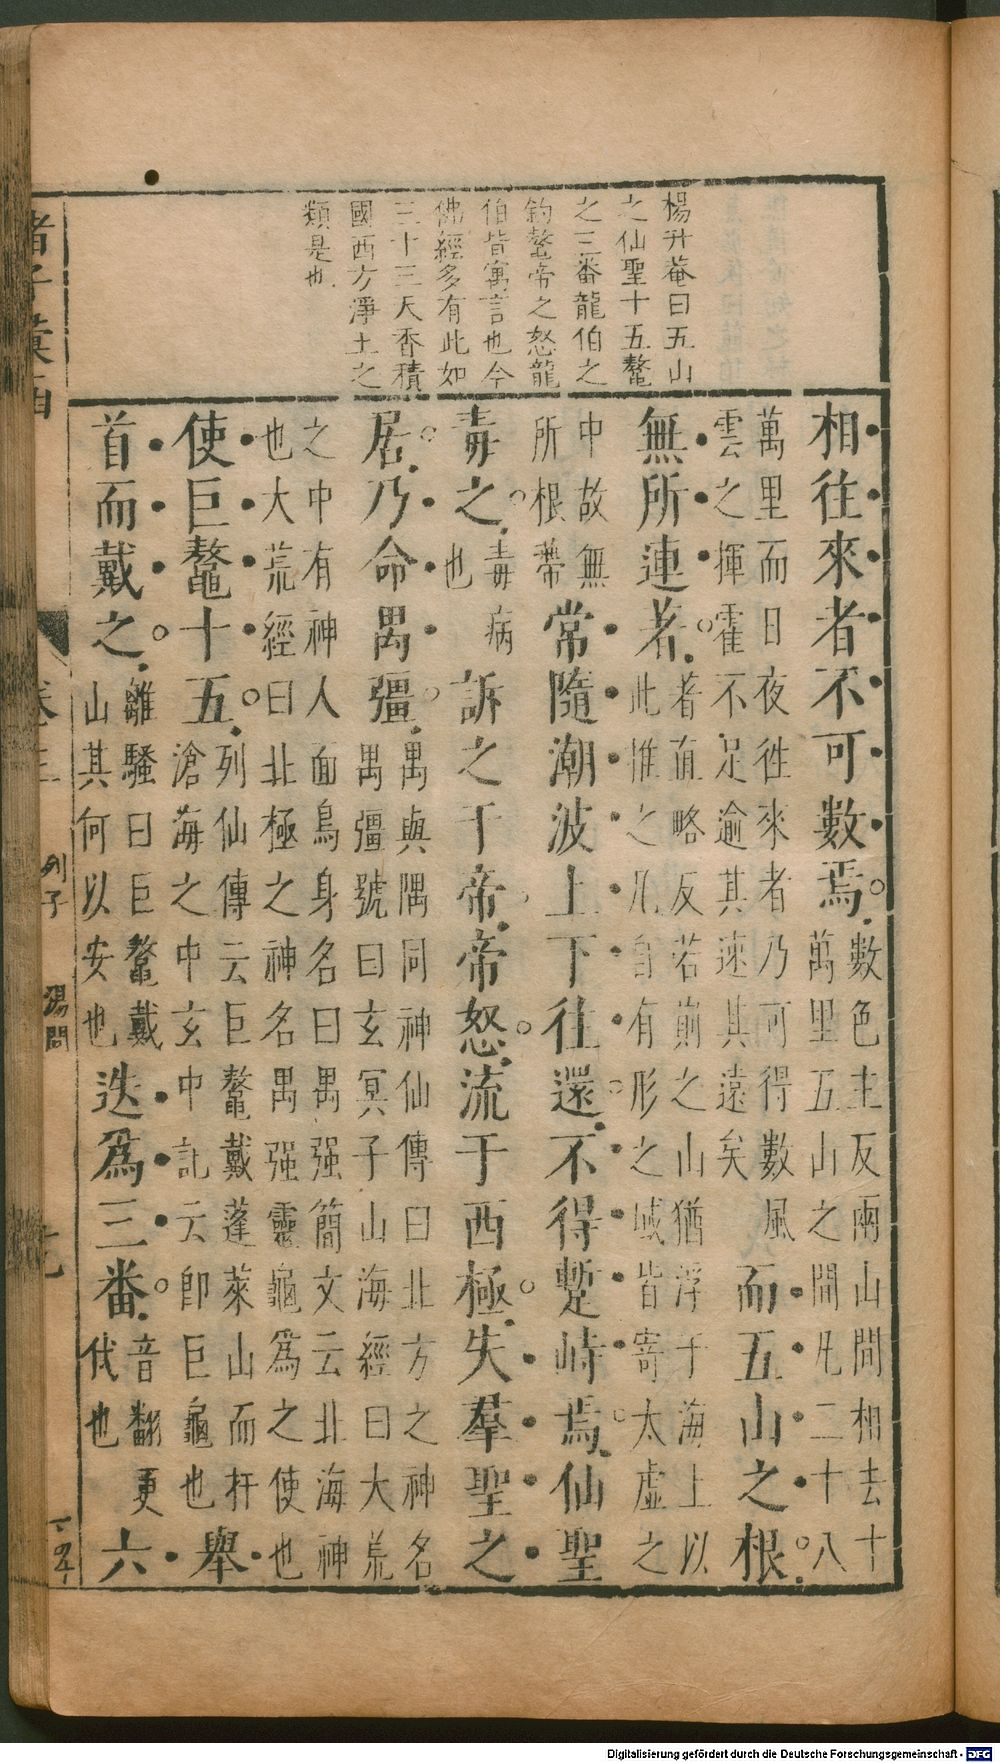 楊升菴曰五山
之仙聖十五鼇
之三番龍伯之
釣鼇帝之怒龍
伯皆寓言也今
佛經多有此如
三十三天香積
國西方淨土之
類是也
相往來者不可數焉數色主反兩山間相去十
萬里五山之間凡二十八
萬里而日夜徃來者乃可得數風
雲之揮霍不足逾其速其遠矣而五山之根
無所連著著直略反若崩之山猶浮于海上以
此惟之凡自有形之域皆寄太虛之
中故無
所根蔕常隨潮波上下往還不得蹔峙焉仙聖
毒之毒病
也訴之于帝帝怒流于西極失羣聖之
居乃命禺彊禺與隅同神仙傳曰北方之神名
禺彊號曰玄冥子山海經曰大荒
之中有神人面鳥身名曰禺强簡文云北海神
也大荒經曰北極之神名禺强靈龜爲之使也
使巨鼇十五列仙傳云巨鼇戴蓬萊山而抃
滄海之中玄中記云即巨龜也舉
首而戴之離騷曰巨鼇戴
山其何以安也迭爲三番音翻更
代也六
諸子彙函
卷
列子
湯問
Digitalisierung gefördert durch die Deutsche Forschungsgemeinschaft - DFG